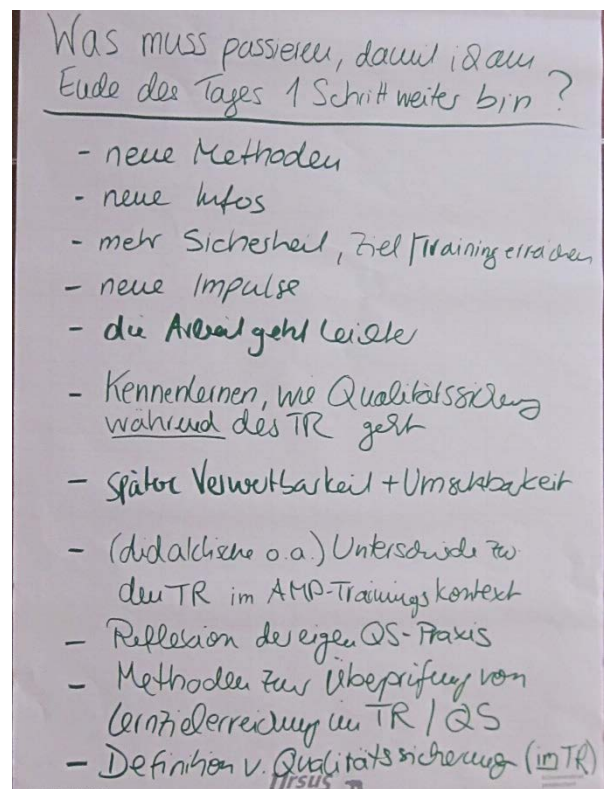 Was muss passieren, damit ich am
Ende des Tages 1 Schritt weiter bin?
- neue Methoden
- neue Infos
- mehr Sicherheit, Ziel/Training erreichen
- neue Impulse
- die Arbeit geht leichter
- Kennenlernen, wie Qualitätssicherung
während des TR geht
- später Verwertbarkeit + Umsetzbarkeit
- (didaktische o.a.) Unterschiede zu
den TR im AMP-Trainingskontext
- Reflexion der eigen QS-Praxis
- Methoden zur Überprüfung von
Lernzielerreichung im TR / QS
- Definition v. Qualitätssicherung (im TR)